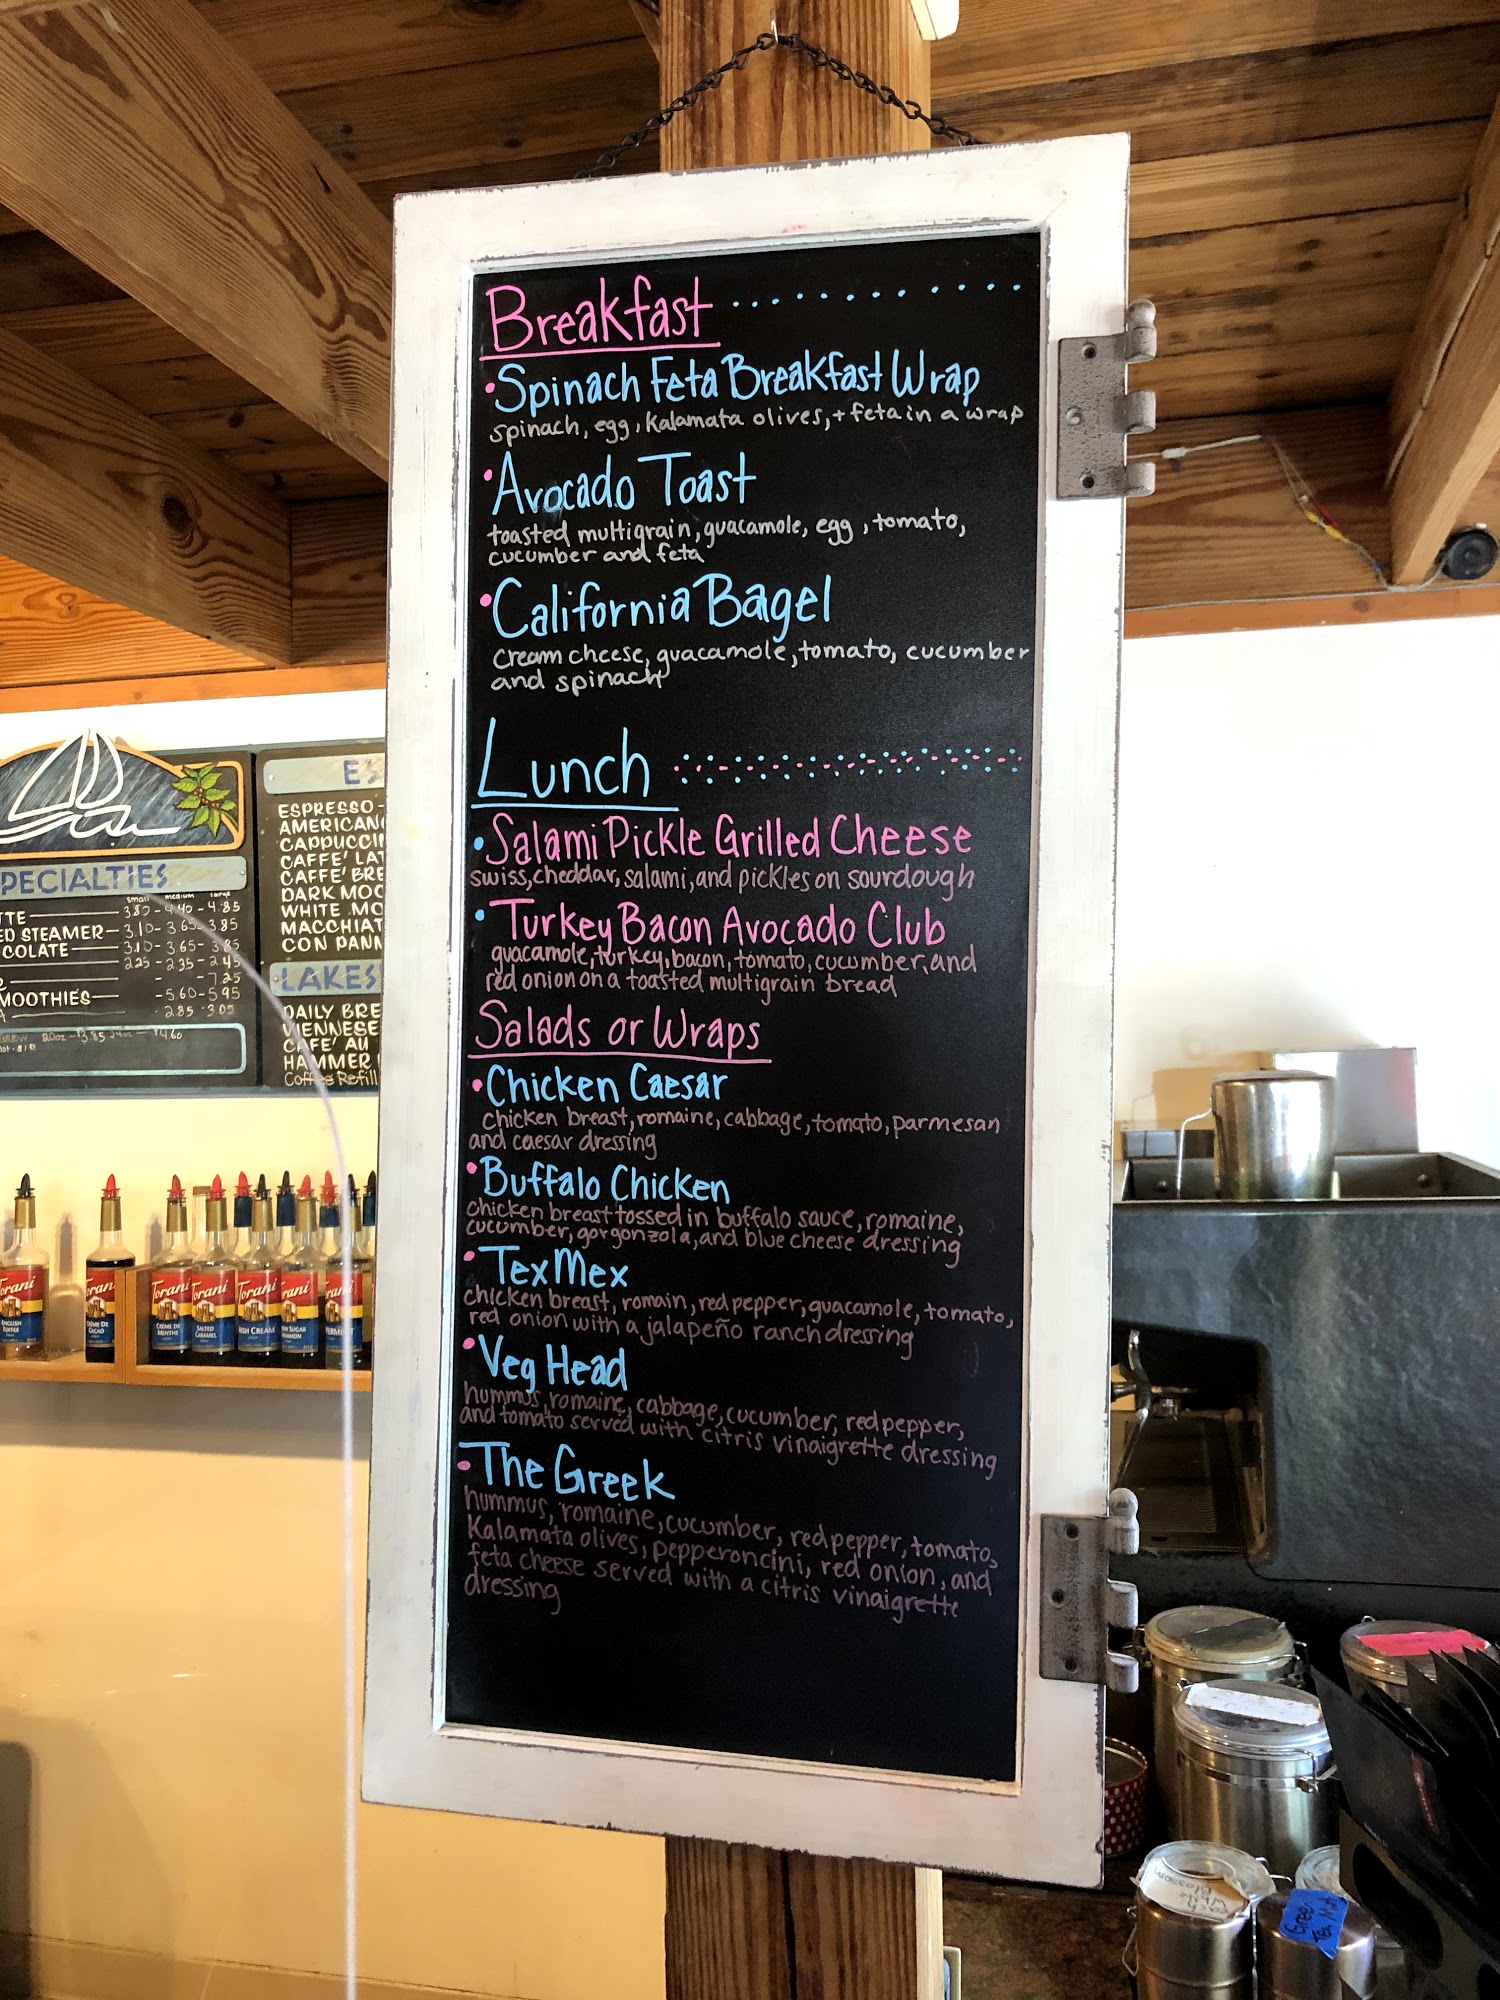 Breakfast
Spinach Feta Breakfast Wrap
spinach, egg, kalamata olives, + feta in a wrap
Avocado Toast
toasted multigrain, guacamole, egg, tomato,
cucumber and feta
California Bagel
cream cheese, guacamole, tomato, cucumber
and spinach
Lunch
Salami Pickle Grilled Cheese
swiss, cheddar, salami, and pickles on sourdough
Turkey Bacon Avocado Club
guacamole, turkey, bacon, tomato, cucumber, and
red onion on a toasted multigrain bread
Salads or Wraps
Chicken Caesar
chicken breast, romaine, cabbage, tomato, parmesan
and caesar dressing
Buffalo Chicken
chicken breast tossed in buffalo sauce, romaine,
cucumber, gorgonzola, and blue cheese dressing
TexMex
chicken breast, romain, red pepper, guacamole, tomato,
red onion with a jalapeño ranch dressing
Veg Head
hummus, romaine, cabbage, cucumber, red pepper,
and tomato served with citris vinaigrette dressing
The Greek
hummus, romaine, cucumber, red pepper, tomato,
Kalamata olives, pepperoncini, red onion, and
feta cheese served with a citris vinaigrette
dressing
PECIALTIES
small medium large
TTE 3.80 - 4.40 - 4.85
ED STEAMER - 3.10 - 3.65 - 3.85
COLATE 3.10 - 3.65 - 3.85
2.25 - 2.35 - 2.45
- 7.25
MOOTHIES - 5.60 - 5.95
2.85 - 3.05
ES
ESPRESSO
AMERICAN
CAPPUCCI
CAFFE' LAT
CAFFE' BRE
DARK MOC
WHITE MO
MACCHIAT
CON PANN
LAKES
DAILY BRE
VIENNESE
CAFE' AU
HAMMER
Coffee Refill
Torani
ENGLISH
TOFFEE
Torani
CRÈME DE
CACAO
Torani
CRÈME DE
MENTHE
Torani
SALTED
CARAMEL
Torani
ISH CREAM
Torani
WN SUGAR
NAMON
Torani
PERMINT
Green
Tea